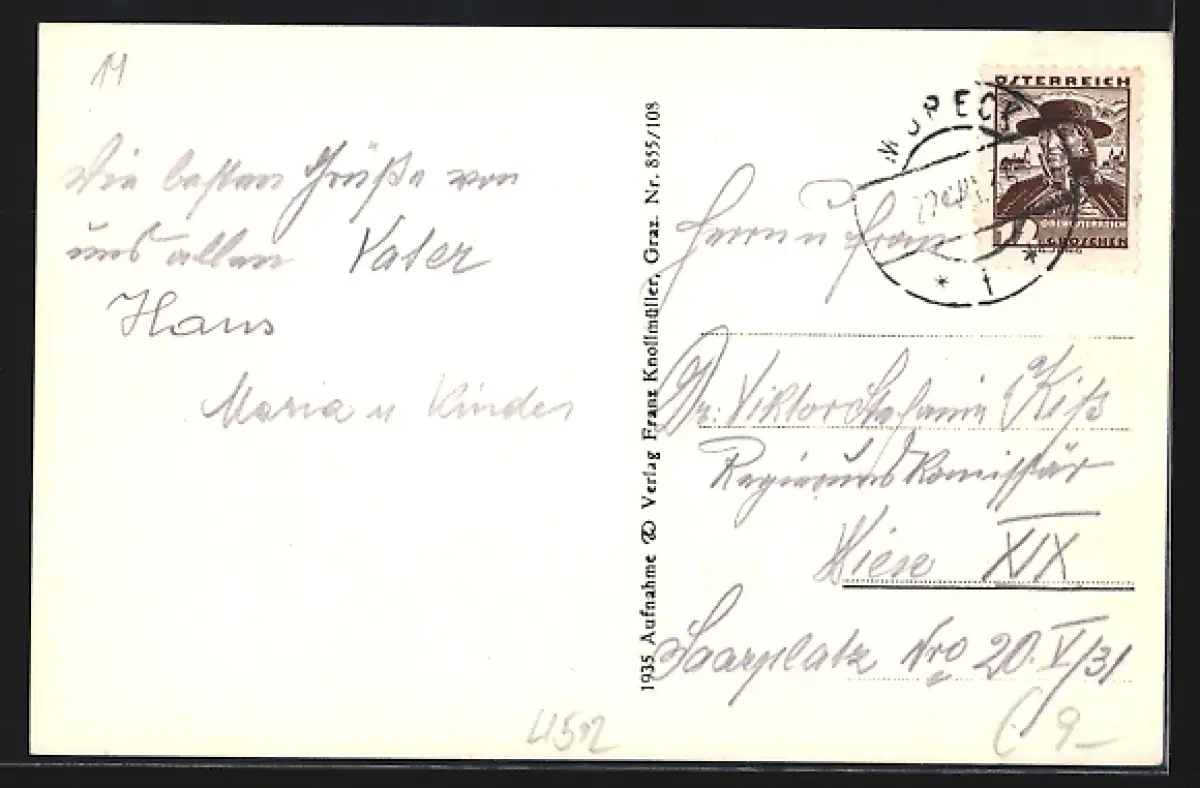 M
Die besten Grüße von
uns allen Vater
Hans
Maria u Kinder
4512
1935 Aufnahme Verlag Franz Knollmüller, Graz. Nr. 855/108
ÖSTERREICH
OBERÖSTERREICH
12 GROSCHEN
MURECK
1
Herrn u Frau
Dr. Viktor Stefanie Kiß
Regierungskomissär
Wien XIX
Saarplatz Nro 20. V/31
9-